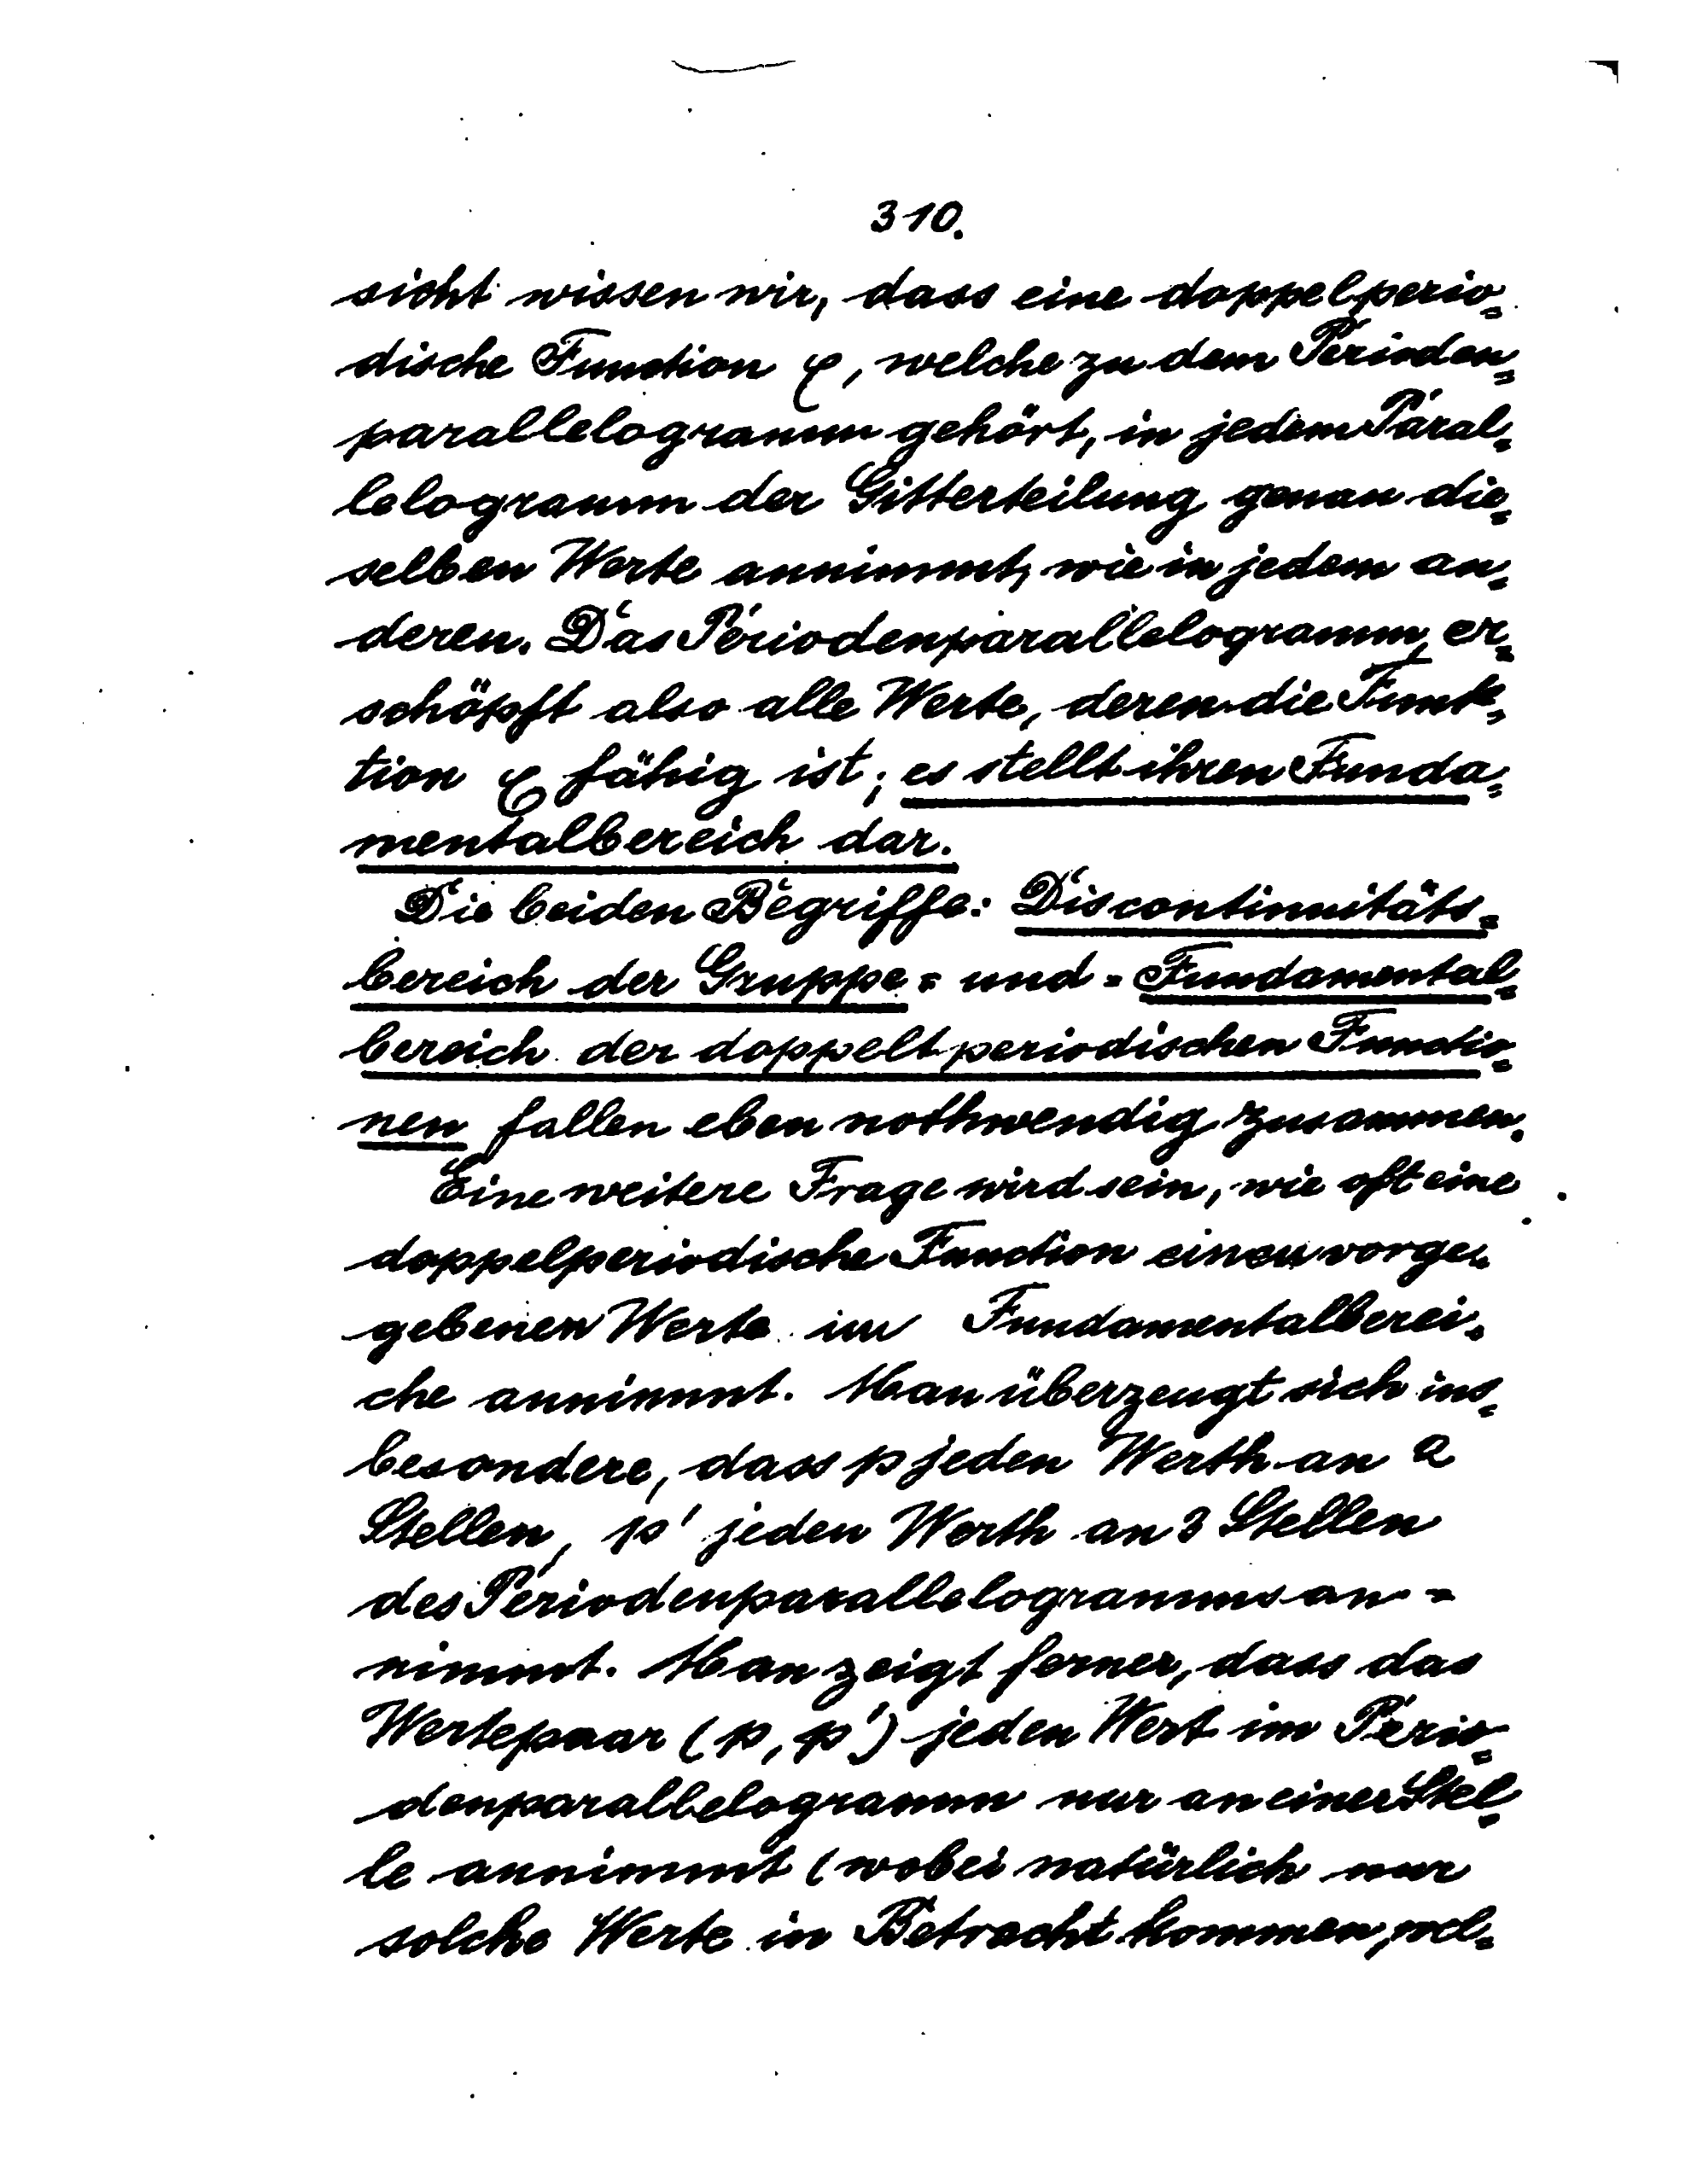 310.
sicht wissen wir, dass eine doppelperio=
dische Function φ, welche zu dem Perioden=
parallelogramm gehört, in jedem Paral=
lelogramm der Gitterteilung genau die=
selben Werte annimmt, wie in jedem an=
deren. Das Periodenparallelogramm er=
schöpft also alle Werte, deren die Funk=
tion φ fähig ist; es stellt ihren Funda=
mentalbereich dar.
Die beiden Begriffe: Discontinuitäts=
bereich der Gruppe = und = Fundamental=
bereich der doppeltperiodischen Functio=
nen fallen eben nothwendig zusammen.
Eine weitere Frage wird sein, wie oft eine
doppelperiodische Function einen vorge=
gebenen Werte im Fundamentalberei=
che annimmt. Man überzeugt sich ins=
besondere, dass p jeden Werth an 2
Stellen, p' jeden Werth an 3 Stellen
des Periodenparallelogramms an =
nimmt. Man zeigt ferner, dass das
Wertepaar (p, p') jeden Wert im Perio=
denparallelogramm nur an einer Stel=
le annimmt (wobei natürlich nur
solche Werte in Betracht kommen, wel=